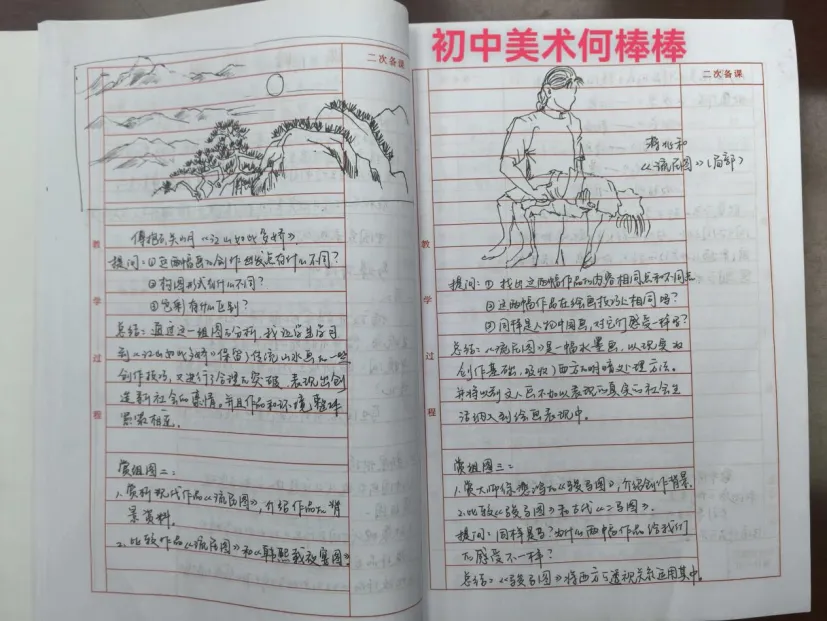 二次备课
教学过程
傅抱石、关山月《江山如此多娇》。
提问:①这两幅画的创作出发点有什么不同?
②构图形式有什么不同?
③色彩有什么区别?
总结:通过这一组图的分析,我让学生学习
到《江山如此多娇》保留了传统山水画的一些
创作技巧,又进行了合理的突破,表现出创
造新社会的豪情。并且作品和环境整体
紧密相连。
赏组图二:
1.赏析现代作品《流民图》,介绍作品的背
景资料。
2.比较作品《流民图》和《韩熙载夜宴图》
初中美术何棒棒
二次备课
蒋兆和
《流民图》(局部)
教学过程
提问:①找出这两幅作品的内容相同点和不同点
②这两幅作品在绘画技巧上相同吗?
③同样是人物中国画,对它们感受一样吗?
总结:《流民图》是一幅水墨画,以现实为
创作基础,吸收了西方的明暗处理方法。
并将以到文人画不加以表现的真实的社会生
活纳入到绘画表现中。
赏组图三:
1.赏大师徐悲鸿的《骏马图》,介绍创作背景。
2.比较《骏马图》和古代《二马图》。
提问:同样是马?为什么两幅作品给我们
的感受不一样?
总结:《骏马图》将西方的透视关系运用其中。